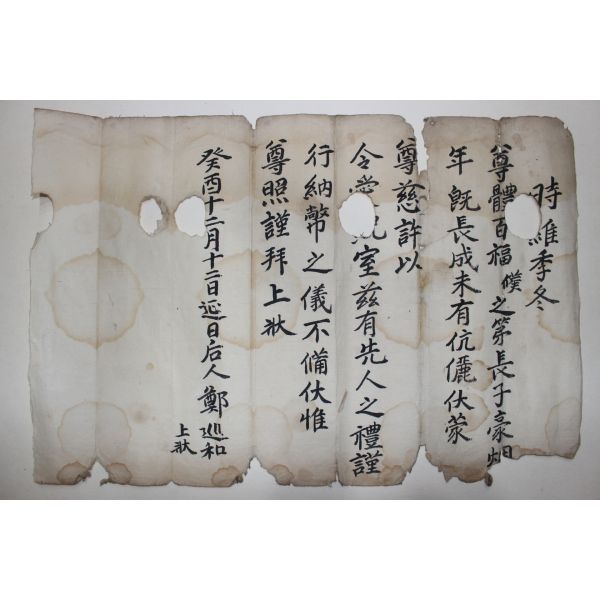 時維季冬
尊體百福 僕之第長子豪炯
年旣長成未有伉儷伏蒙
尊慈許以
令 室玆有先人之禮謹
行納幣之儀不備伏惟
尊照謹拜上狀
癸酉十二月十二日延日后人鄭 和
上狀